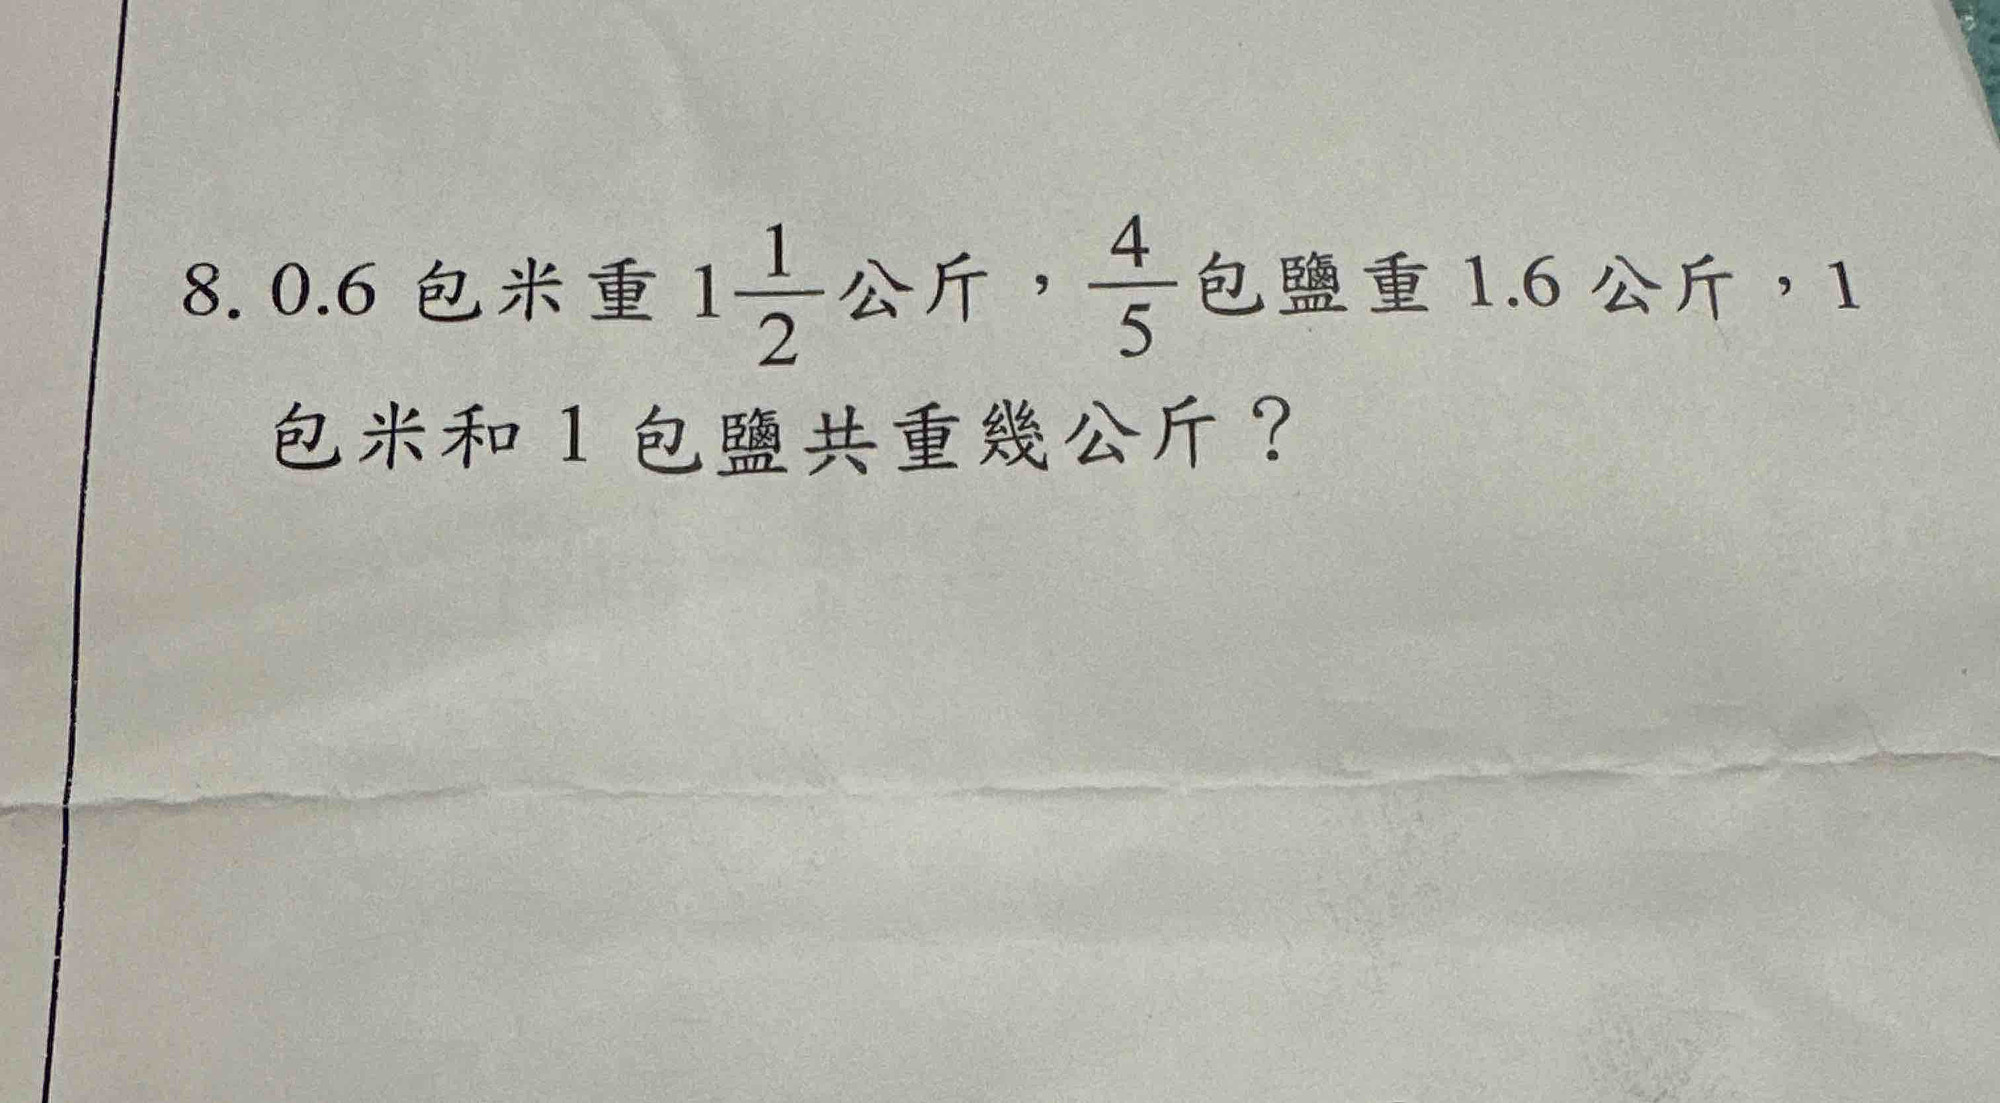 8. 0.6 包米重 1 1/2 公斤，4/5 包鹽重 1.6 公斤，1
包米和 1 包鹽共重幾公斤？